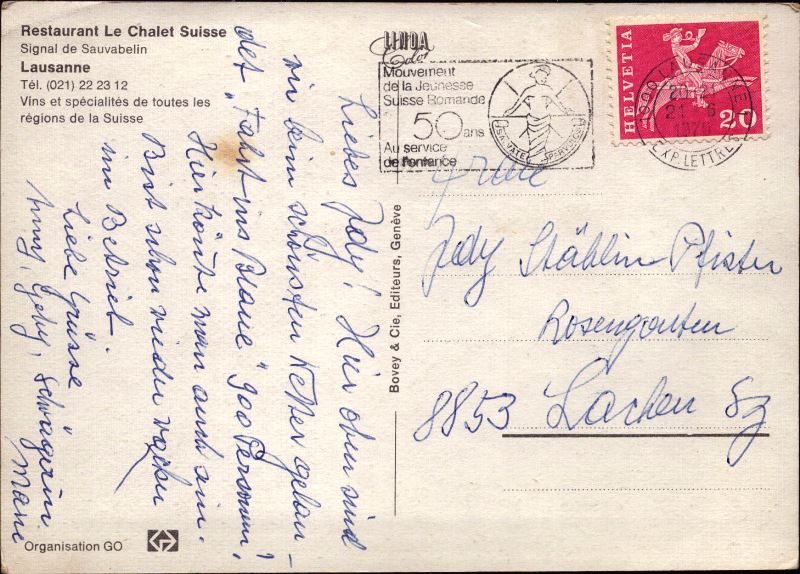 Restaurant Le Chalet Suisse
Signal de Sauvabelin
Lausanne
Tél. (021) 22 23 12
Vins et spécialités de toutes les
régions de la Suisse
LINDA
Mouvement
de la Jeunesse
Suisse Romande
50 ans
Au service
de l'enfance
HELVETIA
20
EXP. LETTRES
Liebes Jedy! Hier oben sind
wir beim schönsten Wetter gelan-
det „Fahrt ins Blaue" 900 Personen!
Hier könnte man auch sein.
Bist schon wieder
im Betrieb.
Liebe Grüsse
Schwägerin
Bovey & Cie, Editeurs, Genève
Frau
Jedy Stählin-Pfister
Rosengarten
8853 Lachen Sz
Organisation GO